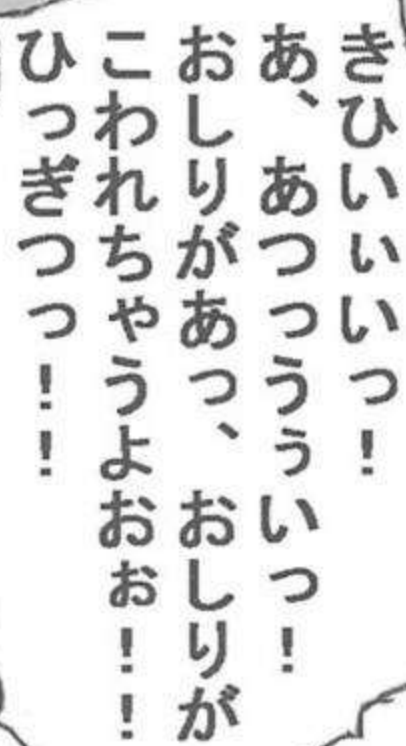 きひいぃいっ！
あ、あつっうぅいっ！
おしりがあっ、おしりが
こわれちゃうよおぉ！！
ひっぎつっ！！